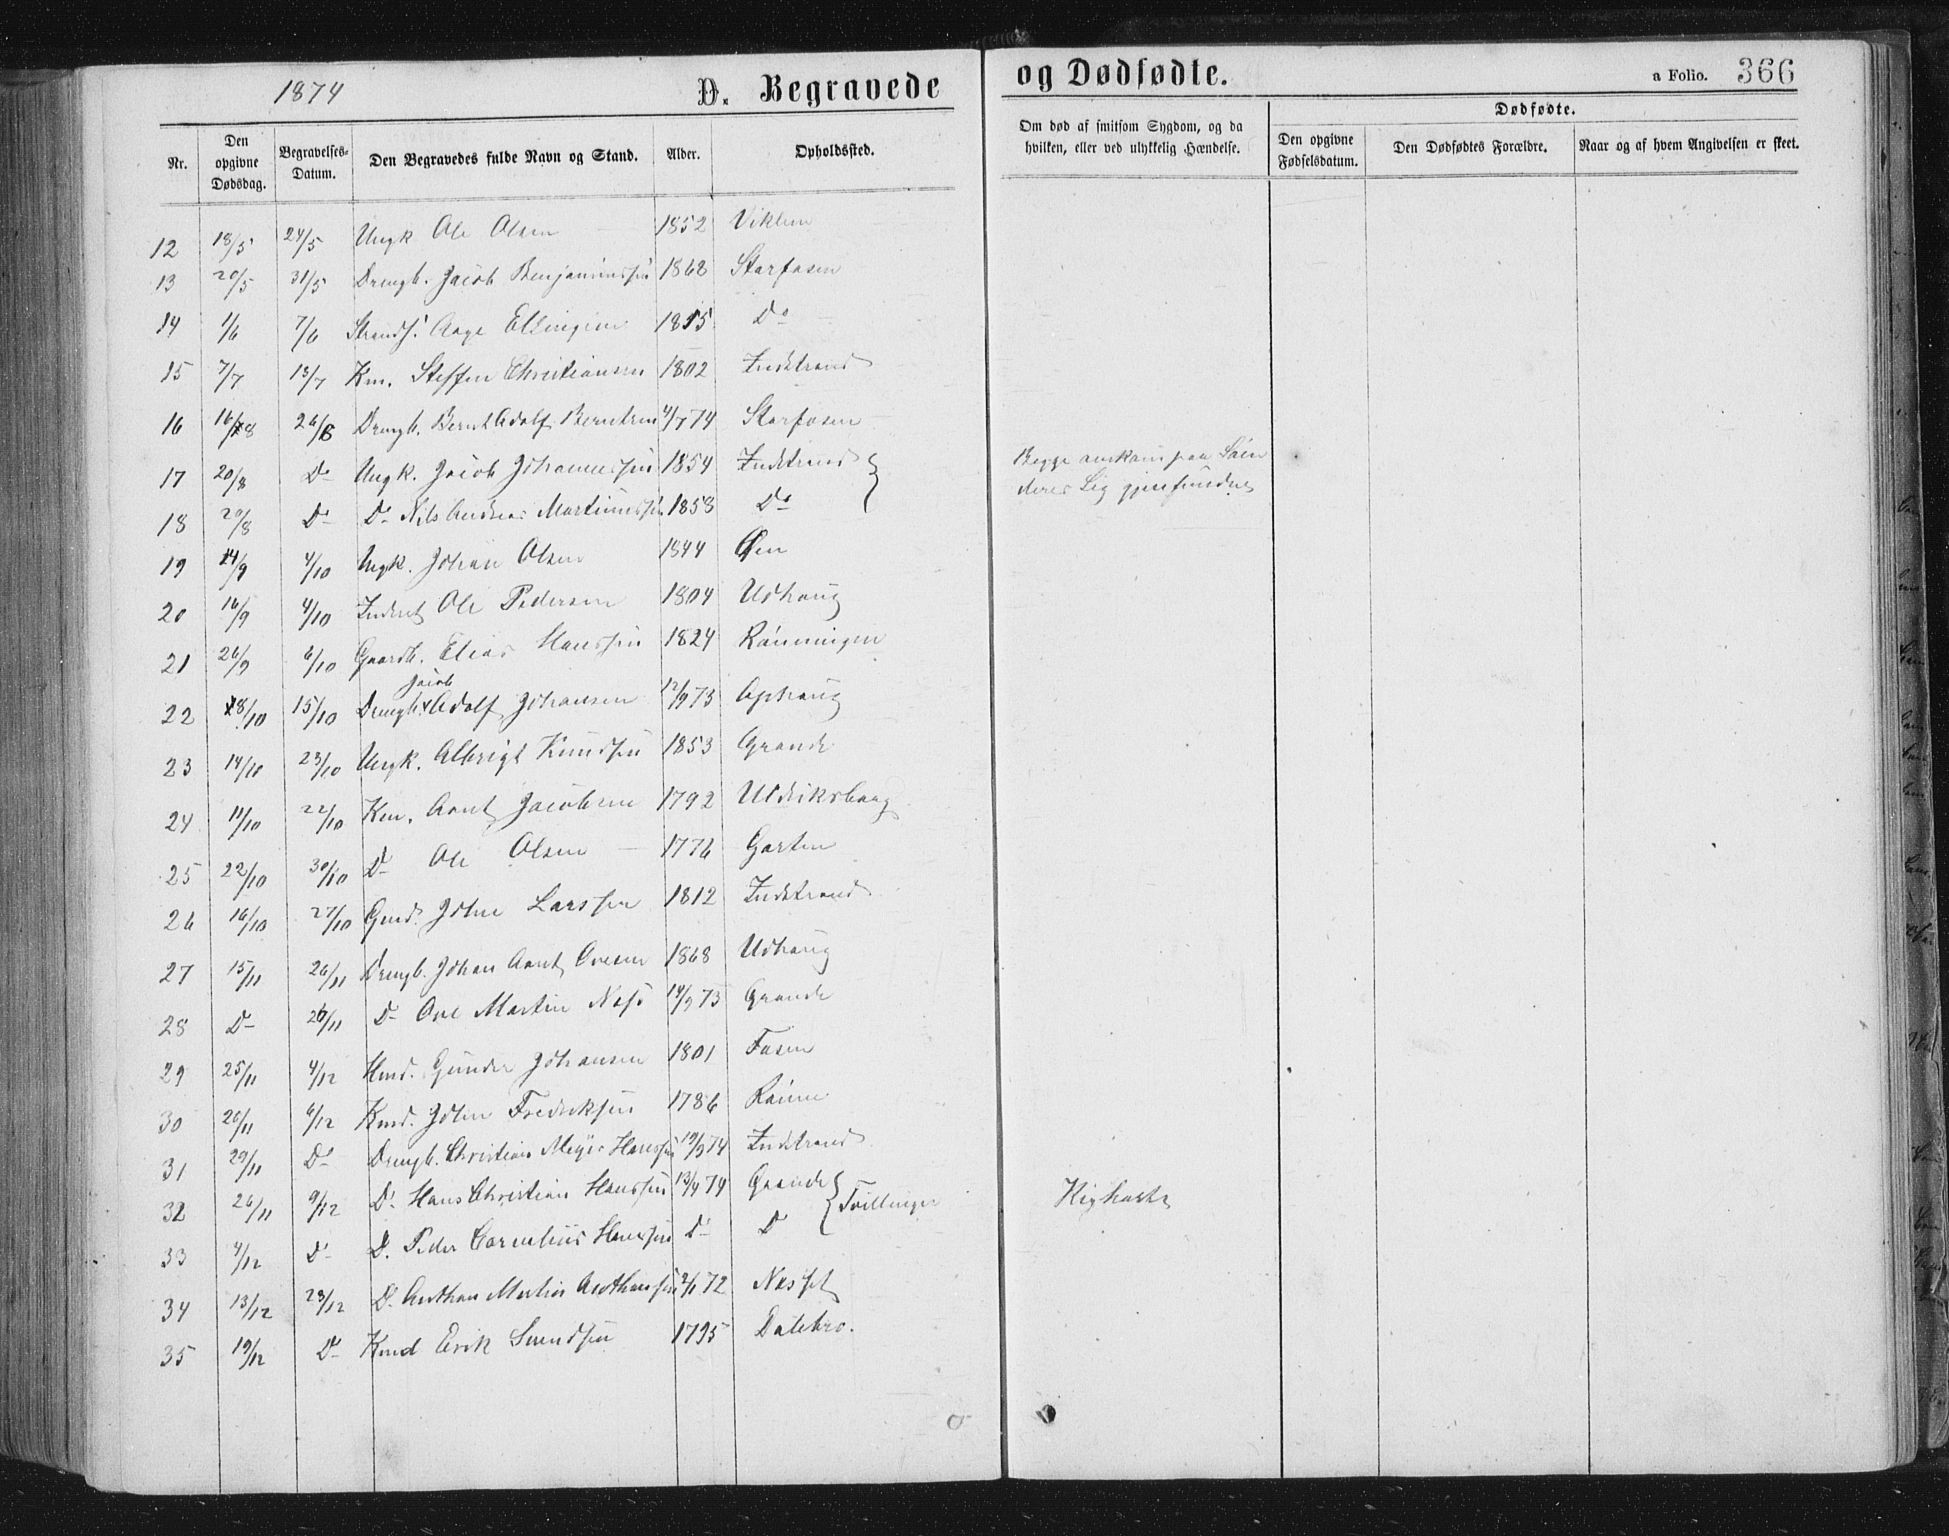 1874
D. Begravede og Dødfødte.
a Folio. 366
Nr. | Den opgivne Dødsdag. | Begravelses-Datum. | Den Begravedes fulde Navn og Stand. | Alder. | Opholdssted. | Om død af smitsom Sygdom, og da hvilken, eller ved ulykkelig Hændelse. | Dødfødte. | Den opgivne Fødselsdatum. | Den Dødfødtes Forældre. | Naar og af hvem Angivelsen er skeet.
12 18/5 24/5 Ungk Ole Olsen 1852 Viklem
13 20/5 31/5 Drengb. Jacob Benjaminssen 1868 Storfosen
14 1/6 7/6 Aage Ellingsen 1815 Do
15 7/7 13/7 Km. Steffen Christiansen 1802 Indstrand
16 16/8 26/8 Drengb. Bernt Adolf Berntsen 4/7 74 Storfosen
17 20/8 D- Ungk. Jacob Johannessen 1854 Indstrand Begge omkom paa Søen
18 20/8 D- D- Nils Andreas Martinussen 1858 Do deres Lig gjenfundne
19 14/9 4/10 Ungk. Johan Olsen 1844 Øen
20 16/9 4/10 Inderst Ole Pedersen 1804 Udhaug
21 26/9 6/10 Gaardb. Elias Hanssen 1824 Rønningen
Jacob
22 8/10 15/10 Drengb. Adolf Johansen 12/9 73 Ophaug
23 14/10 23/10 Ungk. Albrigt Knudsen 1853 Grande
24 11/10 22/10 Km. Arnt Jacobsen 1792 Uldriksborg
25 22/10 30/10 D- Ole Olsen 1776 Garten
26 16/10 27/10 Gmd. John Larssen 1812 Indstrand
27 15/11 26/11 Drengb. Johan Arnt Ovesen 1868 Udhaug
28 D- 26/11 D- Ove Martin Næss 14/9 73 Grande
29 25/11 4/12 Hmd. Gunder Johansen 1801 Fosen
30 20/11 6/12 Kmd. John Fredriksen 1786 Rønne
31 29/11 Do Drengb. Christian Meyer Hanssen 19/9 74 Indstrand
32 26/11 9/12 D. Hans Christian Hanssen 13/9 74 Grande Tvillinger Kighoste
33 4/12 D- D. Peder Cornelius Hanssen D- D
34 13/12 23/12 D. Martin 72 Næsset
35 19/12 D- Kmd Erik Svendsen 1795 Dalebro.